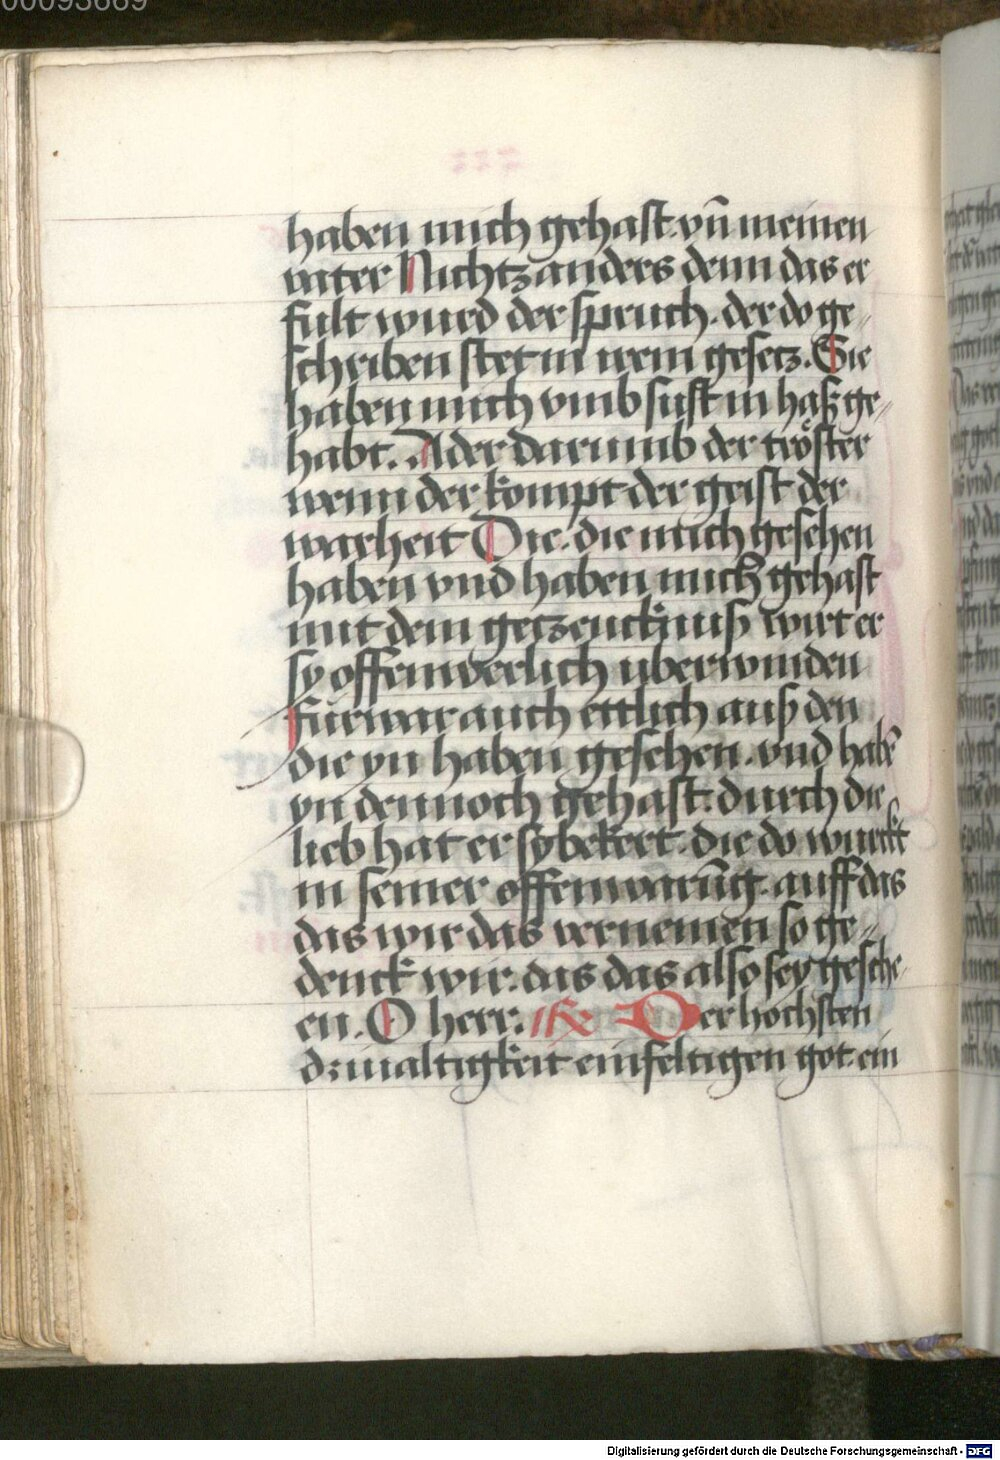 00093669
haben mich gehast. vn̄ meinen
vater Nichtz anders denn das er
fult wurd der spruch. der do ge⸗
schriben stet in irem gesetz. Sie
haben mich vmb sust in haß ge⸗
habt. Ader darumb der tröster
wenn der kompt der geist der
warheit Die. die mich gesehen
haben vnd haben mich gehast
mit dem getzeucknuß wirt er
sy offenwerlich uberwinden
fürwar auch ettlich auß den
die yn haben gesehen. vnd habē
yn dennoch gehast. durch die
lieb hat er sy bekert. die do wurckt
in seiner offenwarūg. auff das
das wir das vernemen so ge⸗
denck wir. das das also sey gesche⸗
en. O herr. Der hochsten
dʒiualtigkeit einfeltigen got. ein
Digitalisierung gefördert durch die Deutsche Forschungsgemeinschaft - DFG